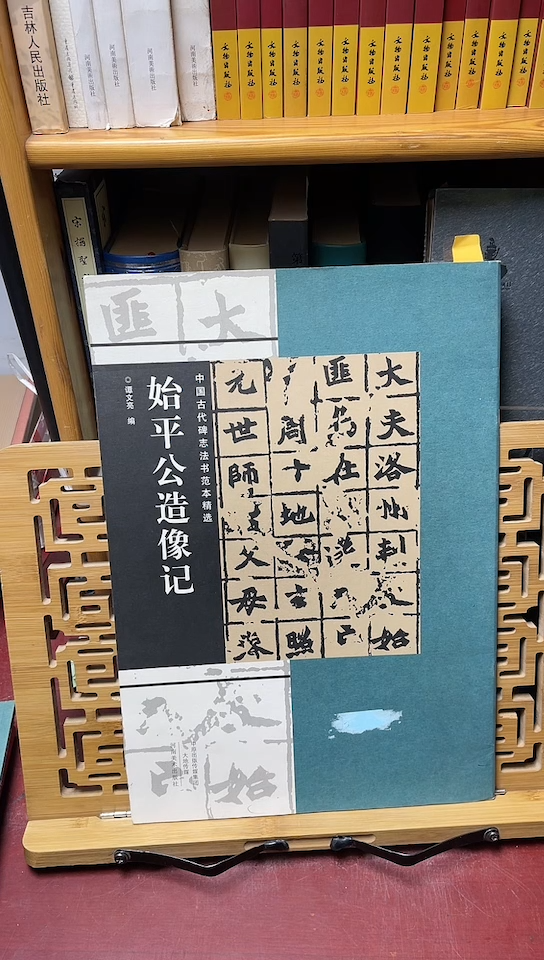 吉林人民出版社
河南美术出版社
河南美术出版社
河南美术出版社
河南美术出版社
文物出版社
文物出版社
文物出版社
文物出版社
文物出版社
文物出版社
文物出版社
文物出版社
文物出版社
文物出版社
文物出版社
文物出版社
文物出版社
宋拓聖
匪 大
中国古代碑志法书范本精选
始平公造像记
◎谭文亮 编
大夫洛州刺 始
匪 在
周十地 玄照
元世師 父母落
中原出版传媒集团
大地传媒
河南美术出版社
始